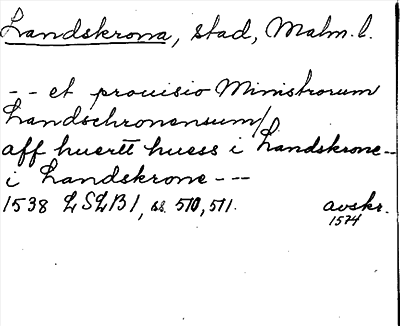 Landskrona, stad, Malm. l.
-- et prouisio Ministrorum
Landschronensum/
aff huertt huess i Landskrone--
i Landskrone ---
1538 LSLB 1, ss. 510, 511. avskr.
1574